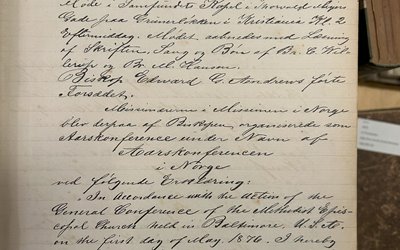 Møde i Samfundets Kapel i Thorvald Meyers
Gade paa Grünerløkken i Kristiania Kl. 2
Eftermiddag. Mødet aabnedes med Læsning
af Skriften, Sang og Bøn af Br. C. Wil-
lerup og Br. M. Hansen.
Biskop Edward G. Andrews førte
Forsædet.
Missionærerne i Missionen i Norge
blev derpaa af Biskopen, organiserede som
Aarskonference under Navn af
Aarskonferencen
i Norge
ved følgende Erklæring:
In Accordance with the action of the
General Conference of the Methodist Epis-
copal Church held in Baltimore, U.S.
on the first day of May 1876, I hereby